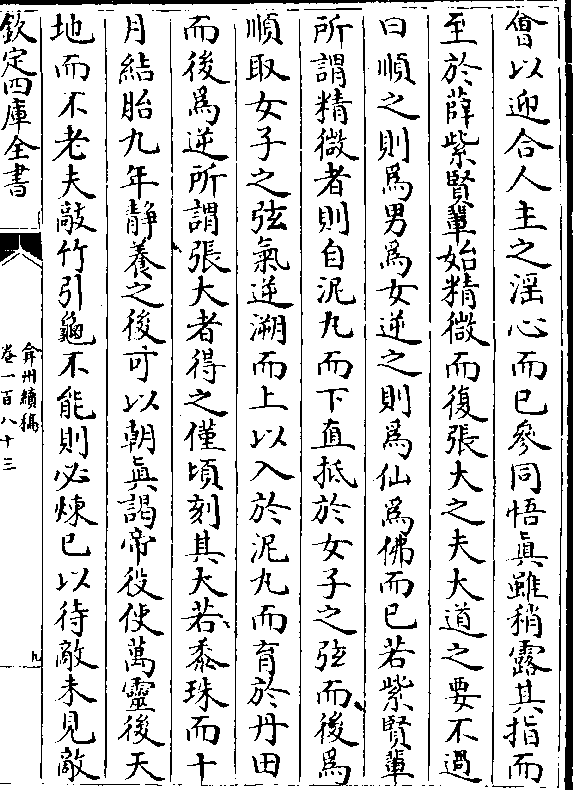 會以迎合人主之淫心而已參同悟眞雖稍露其指而
至於薛紫賢輩始精微而復張大之夫大道之要不過
曰順之則爲男爲女逆之則爲仙爲佛而已若紫賢輩
所謂精微者則自泥丸而下直抵於女子之弦而後爲
順取女子之弦氣逆溯而上以入於泥丸而育於丹田
而後爲逆所謂張大者得之僅頃刻其大若黍珠而十
月結胎九年靜養之後可以朝眞謁帝役使萬靈後天
地而不老夫敲竹引龜不能則必煉己以待敵未見敵
欽定四庫全書
弇州續稿
卷一百八十三
九